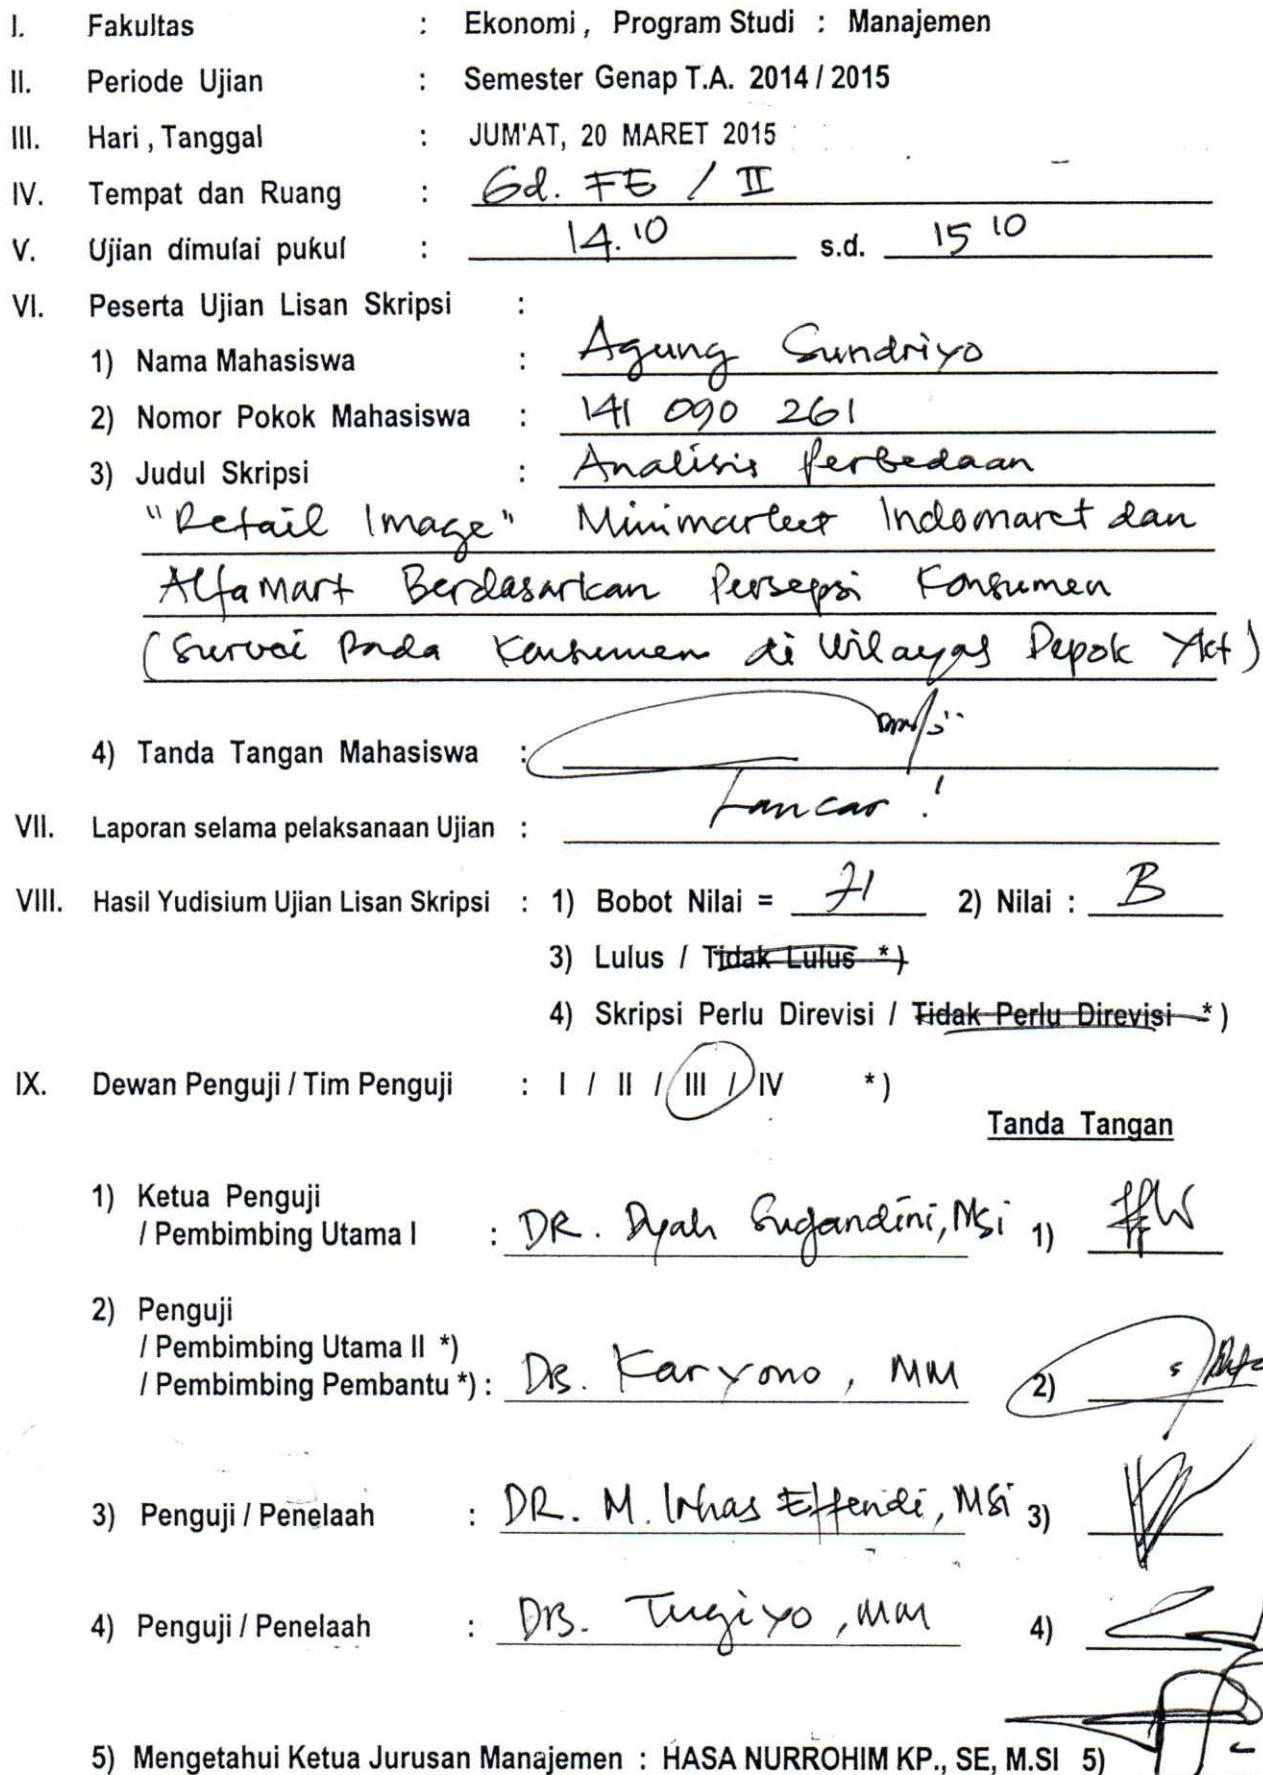 I. Fakultas : Ekonomi, Program Studi : Manajemen
II. Periode Ujian : Semester Genap T.A. 2014 / 2015
III. Hari, Tanggal : JUM'AT, 20 MARET 2015
IV. Tempat dan Ruang : Gd. FE / II
V. Ujian dimulai pukul : 14.10 s.d. 15 10
VI. Peserta Ujian Lisan Skripsi :
1) Nama Mahasiswa : Agung Sundriyo
2) Nomor Pokok Mahasiswa : 141 090 261
3) Judul Skripsi : Analisis Perbedaan
"Retail Image" Minimarket Indomaret dan
Alfamart Berdasarkan Persepsi Konsumen
(Survei Pada Konsumen di Wilayah Depok Ykt)
4) Tanda Tangan Mahasiswa :
VII. Laporan selama pelaksanaan Ujian : Lancar !
VIII. Hasil Yudisium Ujian Lisan Skripsi : 1) Bobot Nilai = 71 2) Nilai : B
3) Lulus / Tidak Lulus *)
4) Skripsi Perlu Direvisi / Tidak Perlu Direvisi *)
IX. Dewan Penguji / Tim Penguji : I / II / III / IV *)
Tanda Tangan
1) Ketua Penguji
/ Pembimbing Utama I : DR. Dyah Sugandini, MSi 1)
2) Penguji
/ Pembimbing Utama II *)
/ Pembimbing Pembantu *) : Drs. Karyono, MM 2)
3) Penguji / Penelaah : DR. M. Irhas Effendi, MSi 3)
4) Penguji / Penelaah : Drs. Tugiyo, MM 4)
5) Mengetahui Ketua Jurusan Manajemen : HASA NURROHIM KP., SE, M.SI 5)